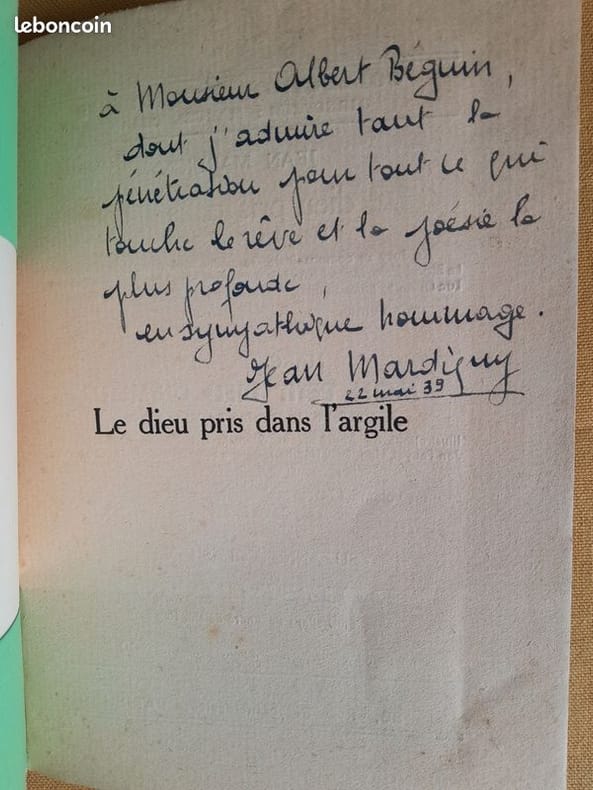 leboncoin
à Monsieur Albert Béguin,
dont j'admire tant la
pénétration pour tout ce qui
touche le rêve et la poésie la
plus profonde,
en sympathique hommage.
Jean Mardigny
22 mai 39
Le dieu pris dans l'argile